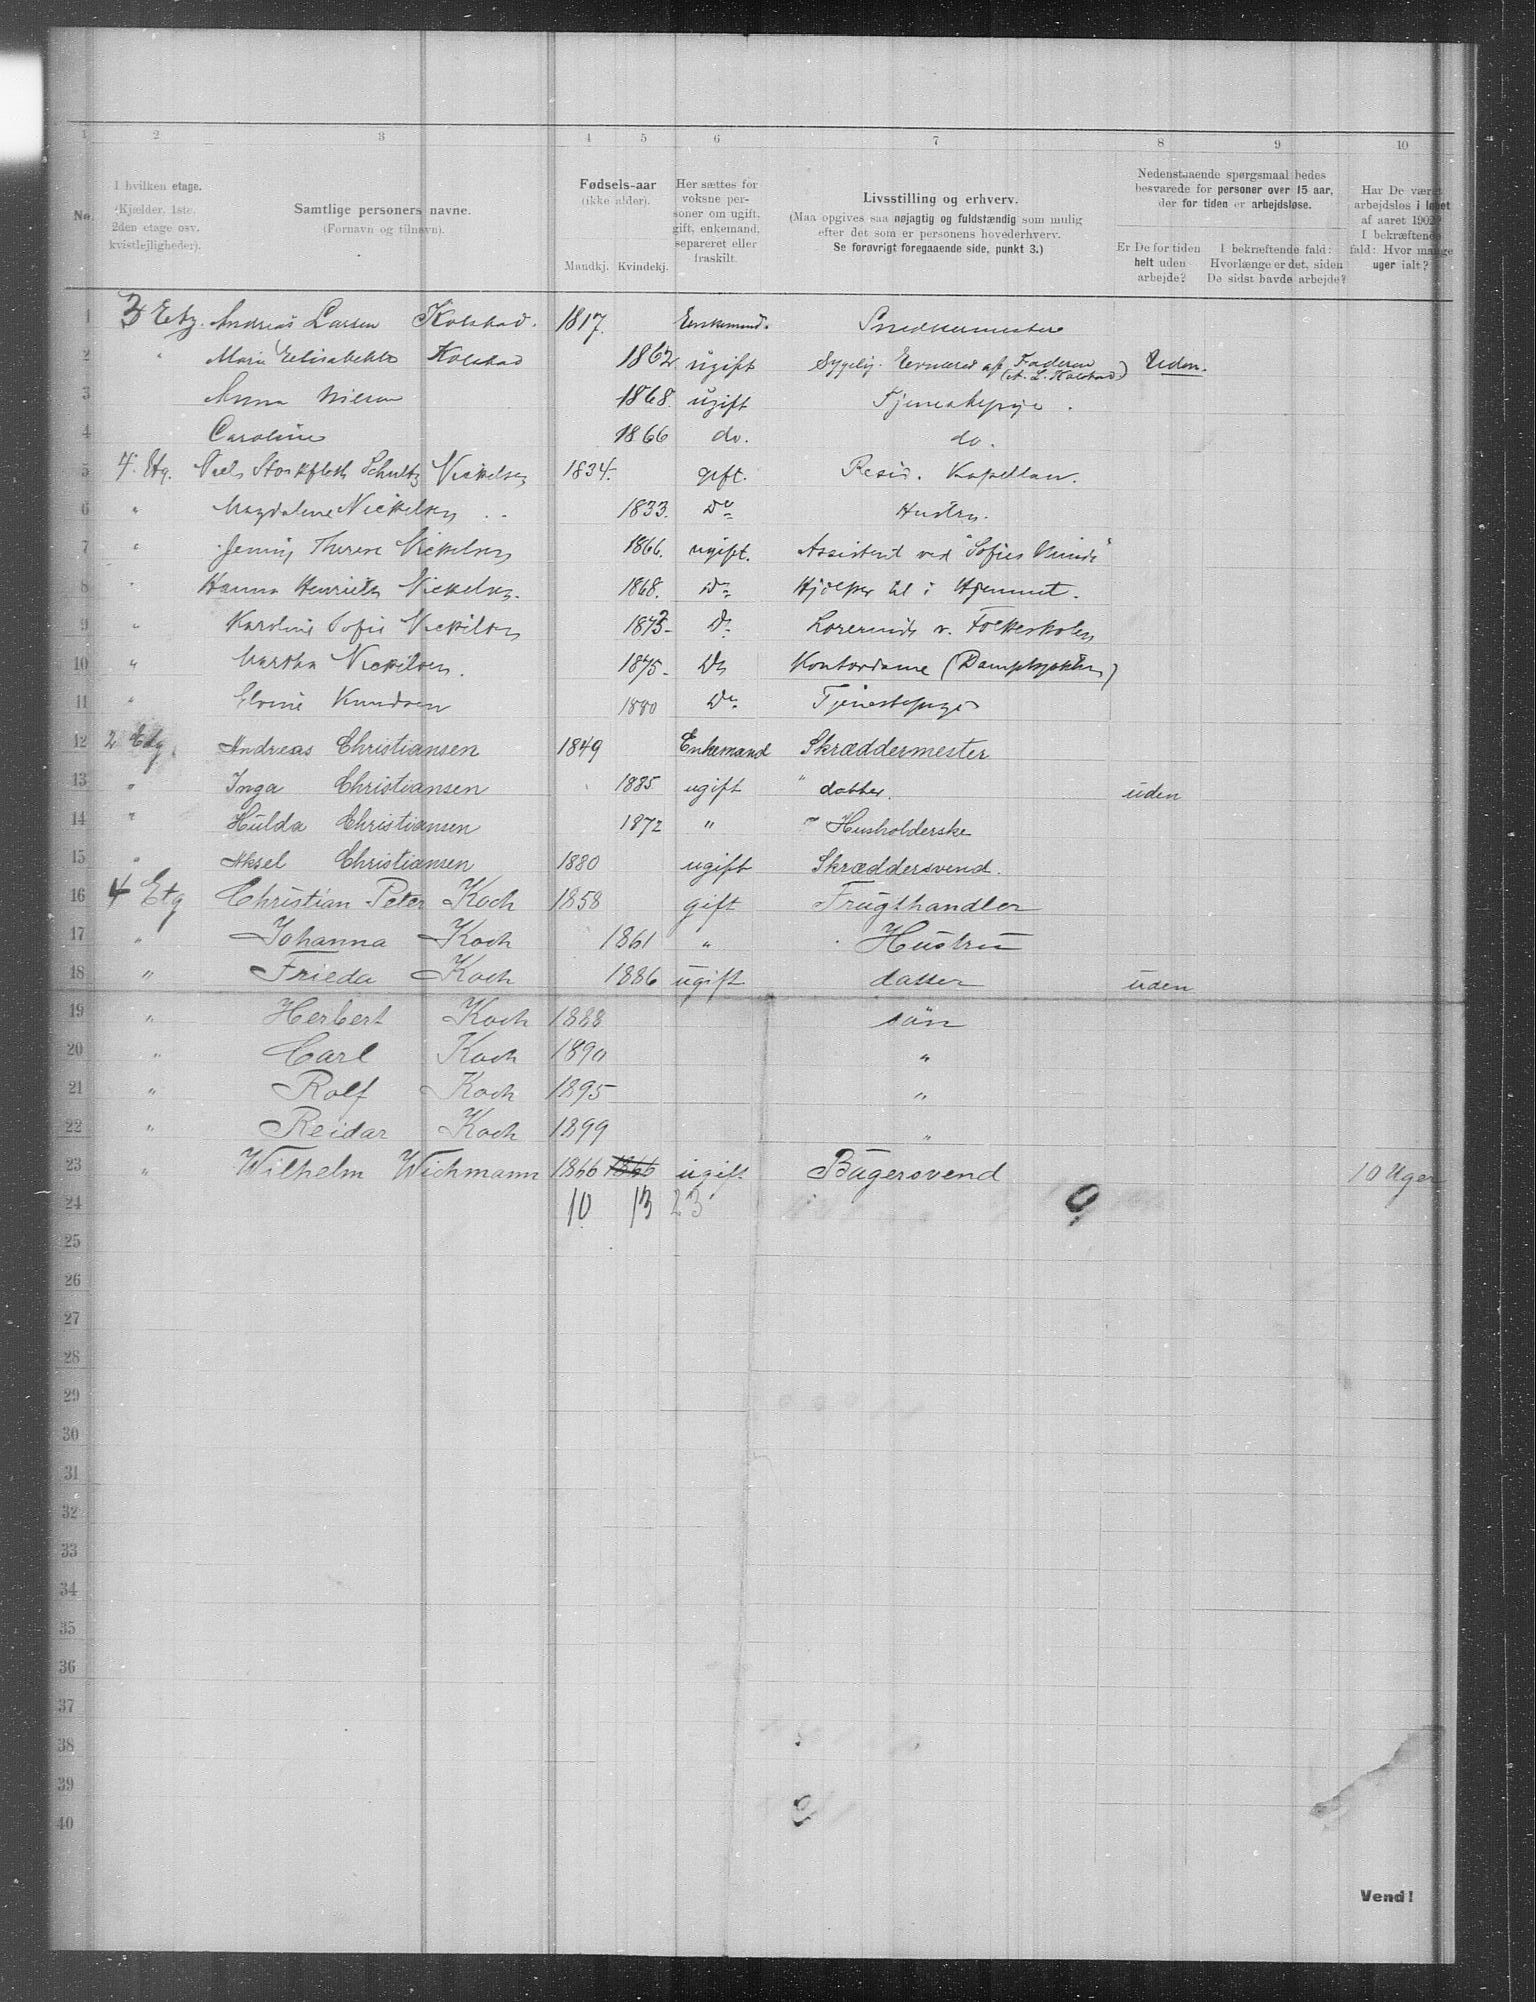 1 2 3 4 5 6 7 8 9 10
No. I hvilken etage. (Kjælder, 1ste, 2den etage osv. kvistlejligheder). Samtlige personers navne. (Fornavn og tilnavn). Fødsels-aar (ikke alder). Mandkj. Kvindekj. Her sættes for voksne personer om ugift, gift, enkemand, separeret eller fraskilt. Livsstilling og erhverv. (Maa opgives saa nøjagtig og fuldstændig som mulig efter det som er personens hovederhverv. Se forøvrigt foregaaende side, punkt 3.) Nedenstaaende spørgsmaal bedes besvarede for personer over 15 aar, der for tiden er arbejdsløse. Er De for tiden helt uden arbejde? I bekræftende fald: Hvorlænge er det, siden De sidst havde arbejde? Har De været arbejdsløs i løbet af aaret 1902? I bekræftende fald: Hvor mange uger ialt?
1 3 Etg. Andreas Larsen Kolstad. 1817. Enkemand. Snedkermester
2 " Marie Elisabeth Kolstad 1862 ugift Sygelig. Ernæres af Faderen (A. L. Kolstad) Uden.
3 Anna Nilsen 1868. ugift Tjenestepige.
4 Caroline 1866 do. do.
5 4. Etg. Niels Stockfleth Schultz Nickelsen 1834. gift. Resid. Kapellan.
6 " Magdalene Nickelsen 1833. Do Hustru.
7 " Jenny Therese Nickelsen 1866. ugift. Assistent ved "Sofies Minde"
8 " Hanna Henriette Nickelsen. 1868. Do Hjælper til i Hjemmet.
9 " Karoline Sofie Nickelsen 1873 Do Lærerinde v. Folkeskolen
10 " Martha Nickelsen. 1875 Do Kontordame (Dampkjøkken)
11 " Elvine Knudsen 1880 Do Tjenestepige
12 2 Etg. Andreas Christiansen 1849 Enkemand Skræddermester
13 " Inga Christiansen 1885 ugift " datter. uden
14 " Hulda Christiansen 1872 " " Husholderske
15 " Aksel Christiansen 1880 ugift Skræddersvend.
16 4 Etg Christian Peter Koch 1858 gift Frugthandler
17 " Johanna Koch 1861 " Hustru
18 " Frieda Koch 1886 ugift datter uden
19 " Herbert Koch 1888 sön
20 " Carl Koch 1890 "
21 " Rolf Koch 1895 "
22 " Reidar Koch 1899 "
23 " Wilhelm Wichmann 1866 1866 ugift Bagersvend 10 Uger
24 10 13 23 9
25
26
27
28
29
30
31
32
33
34
35
36
37
38
39
40
Vend!